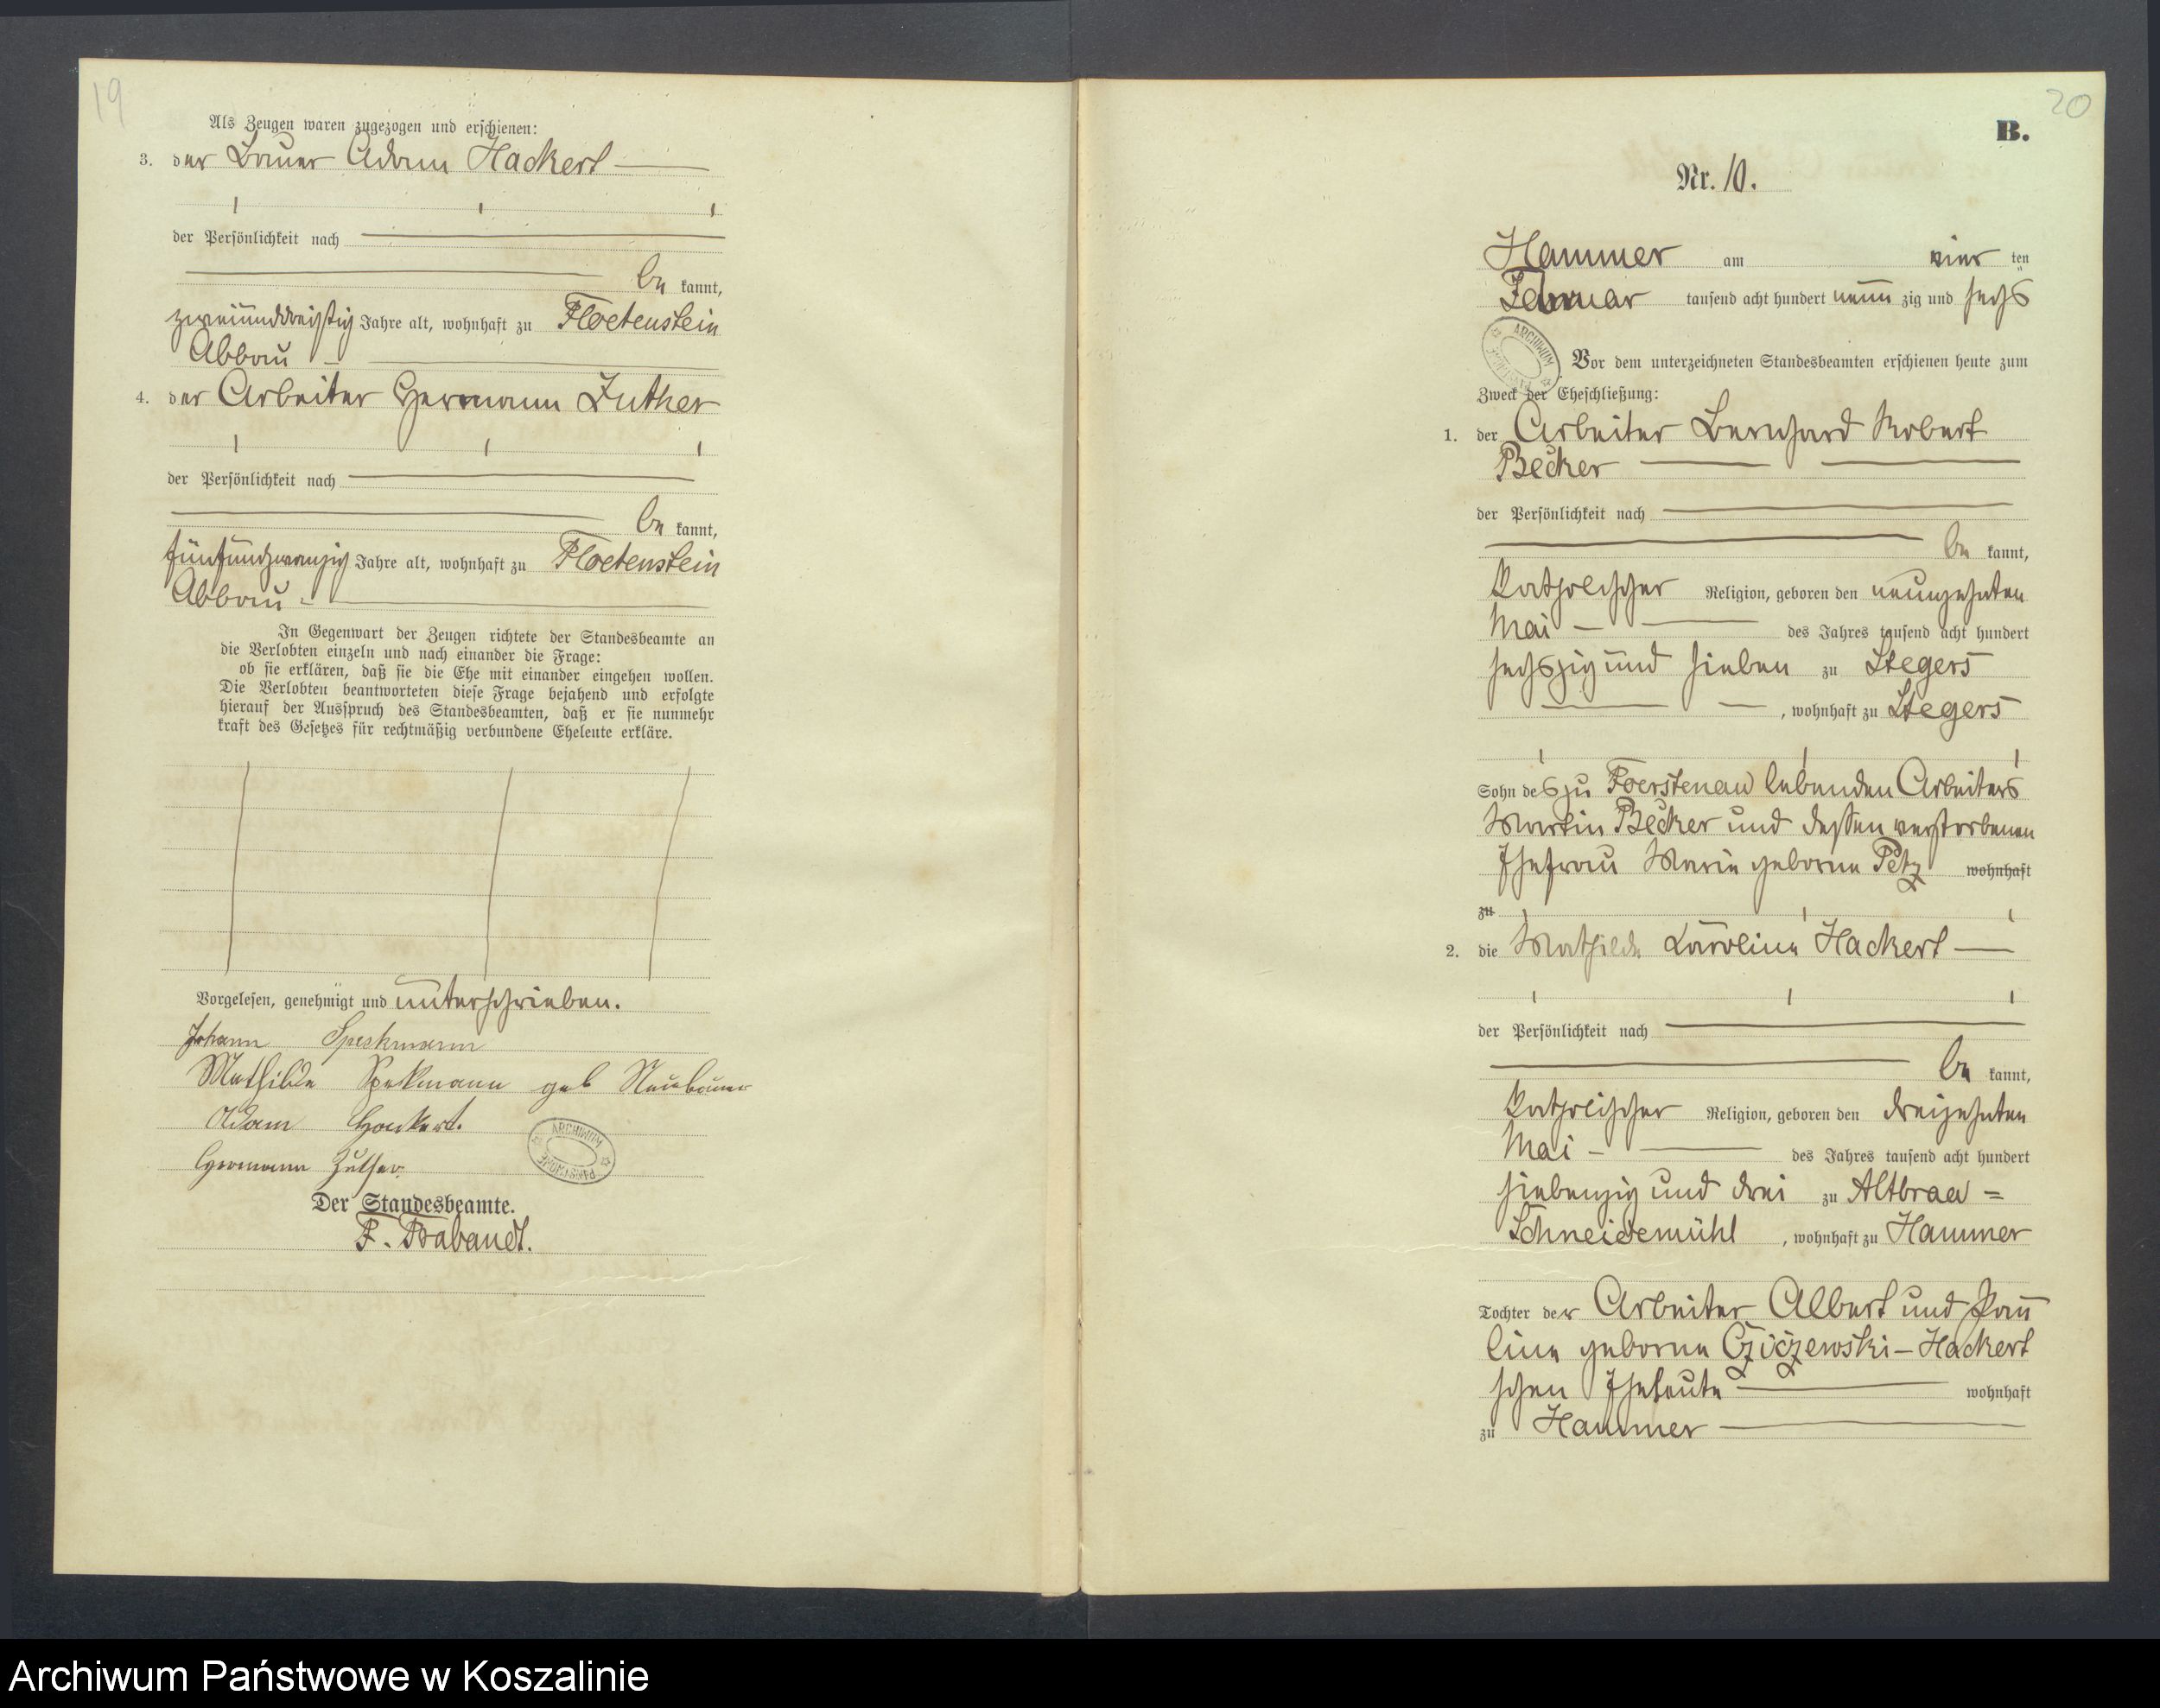 19
Als Zeugen waren zugezogen und erschienen:
3. der Bauer Adam Hackert
der Persönlichkeit nach
be kannt,
zweiunddreißig Jahre alt, wohnhaft zu Floetenstein
Abbau
4. der Arbeiter Hermann Zuther
der Persönlichkeit nach
be kannt,
fünfundzwanzig Jahre alt, wohnhaft zu Floetenstein
Abbau
In Gegenwart der Zeugen richtete der Standesbeamte an
die Verlobten einzeln und nach einander die Frage:
ob sie erklären, daß sie die Ehe mit einander eingehen wollen.
Die Verlobten beantworteten diese Frage bejahend und erfolgte
hierauf der Ausspruch des Standesbeamten, daß er sie nunmehr
kraft des Gesetzes für rechtmäßig verbundene Eheleute erkläre.
Vorgelesen, genehmigt und unterschrieben.
Johann Speskmann
Mathilde Spekmann geb Neubauer
Adam Hackert.
Hermann Zuther.
ARCHIWUM PAŃSTWOWE
Der Standesbeamte.
F. Brabandt.
20
B.
Nr. 10.
Hammer am vier ten
Februar tausend acht hundert neun zig und sechs
ARCHIWUM PAŃSTWOWE
Vor dem unterzeichneten Standesbeamten erschienen heute zum
Zweck der Eheschließung:
1. der Arbeiter Bernhard Robert
Becker
der Persönlichkeit nach
be kannt,
katholischer Religion, geboren den neunzehnten
Mai des Jahres tausend acht hundert
sechszig und sieben zu Stegers
, wohnhaft zu Stegers
Sohn des zu Foerstenau lebenden Arbeiters
Martin Becker und dessen verstorbenen
Ehefrau Marie geborne Petz wohnhaft
zu
2. die Mathilde Karoline Hackert
der Persönlichkeit nach
be kannt,
katholischer Religion, geboren den dreizehnten
Mai des Jahres tausend acht hundert
siebenzig und drei zu Altbraa=
Schneidemühl , wohnhaft zu Hammer
Tochter der Arbeiter Albert und Pau
line geborne Cziczewski-Hackert
schen Eheleute wohnhaft
zu Hammer
Archiwum Państwowe w Koszalinie